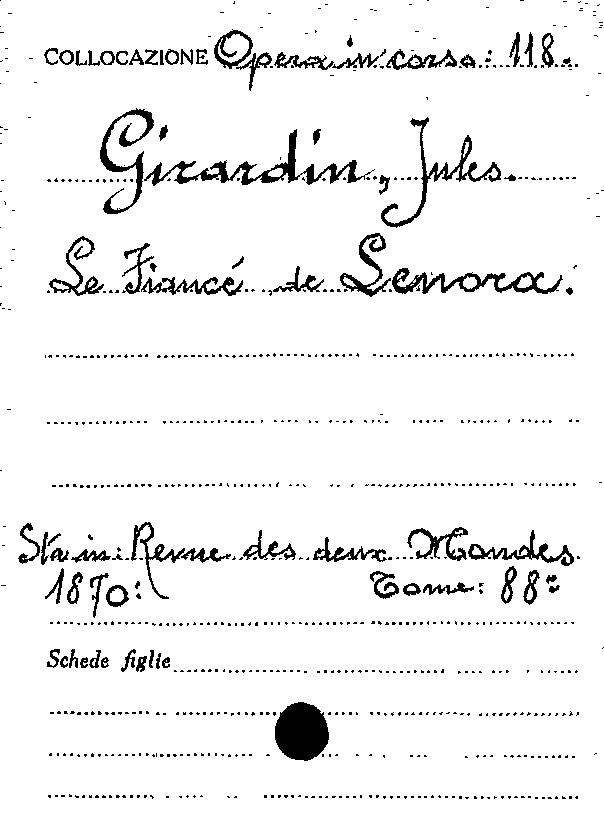 COLLOCAZIONE Opera in corso: 118.
Girardin, Jules.
Le Fiancé de Lenora.
Sta in: Revue des deux Mondes.
1870: Tome: 88º
Schede figlie